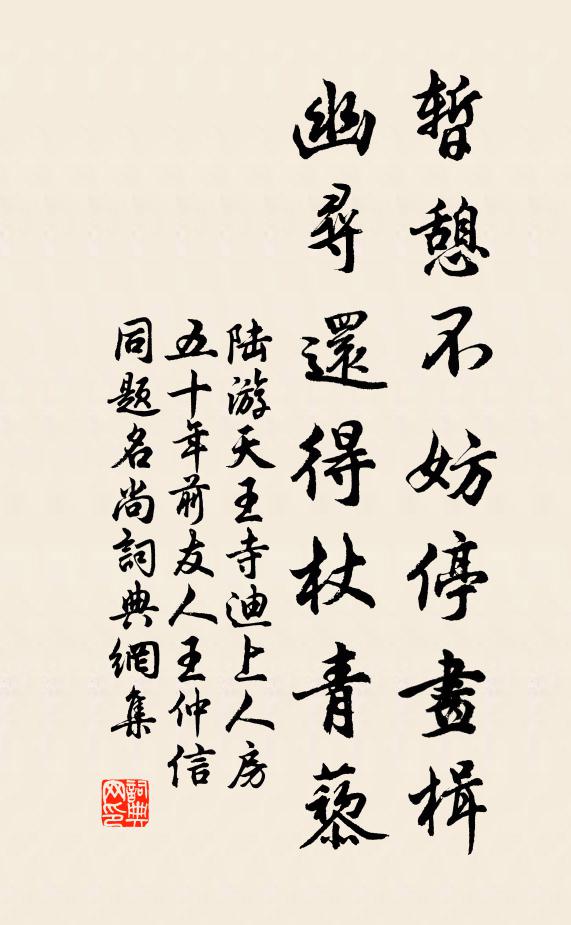 暫憩不妨停畫楫
幽尋還得杖青藜
陆游天王寺迪上人房
五十年前友人王仲信
同题名尚詞典網集
詞典
网印